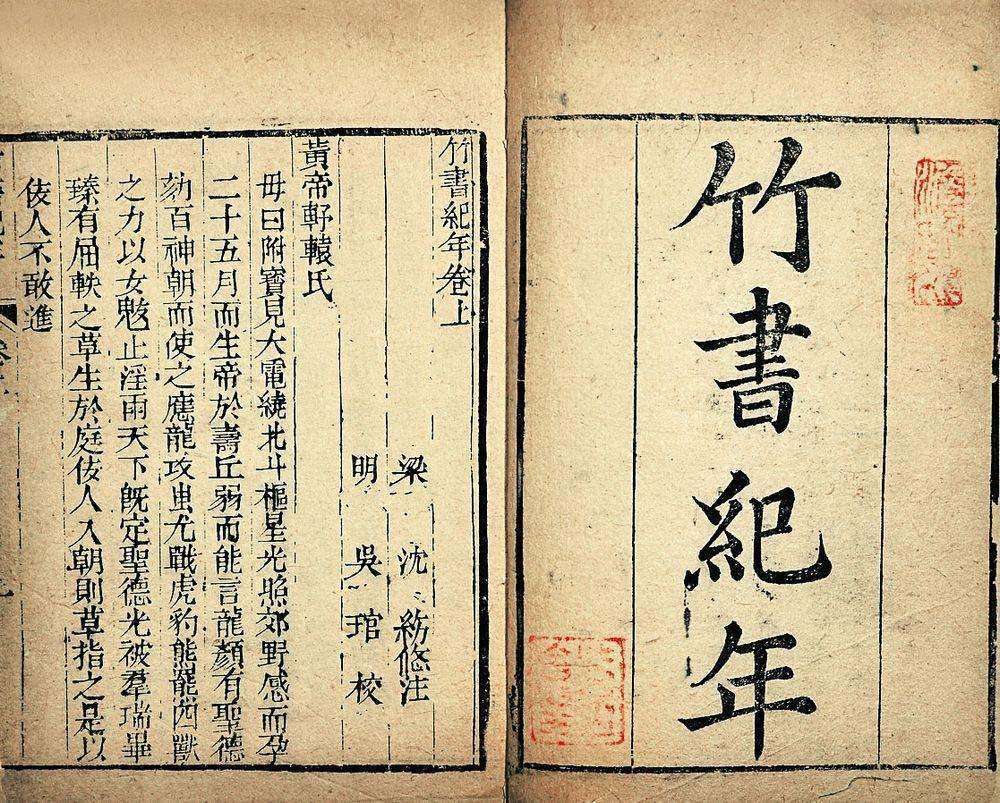 竹書紀年
竹書紀年卷上
梁 沈 紡悠注
明 吳 琯 校
黃帝軒轅氏
毋曰附寶見大電繞北斗樞星光照郊野感而孕
二十五月而生帝於壽丘弱而能言龍顏有聖德
劾百神朝而使之應龍攻蚩尤戰虎豹熊羆四獸
之力以女魃止淫雨天下既定聖德光被羣瑞畢
臻有屈軼之草生於庭佞人入朝則草指之是以
佞人不敢進